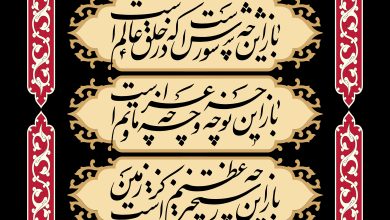 باز این چه شورش است که در خلق عالم است
باز این چه نوحه و چه عزا و چه ماتم است
باز این چه رستخیز عظیم است کز زمین